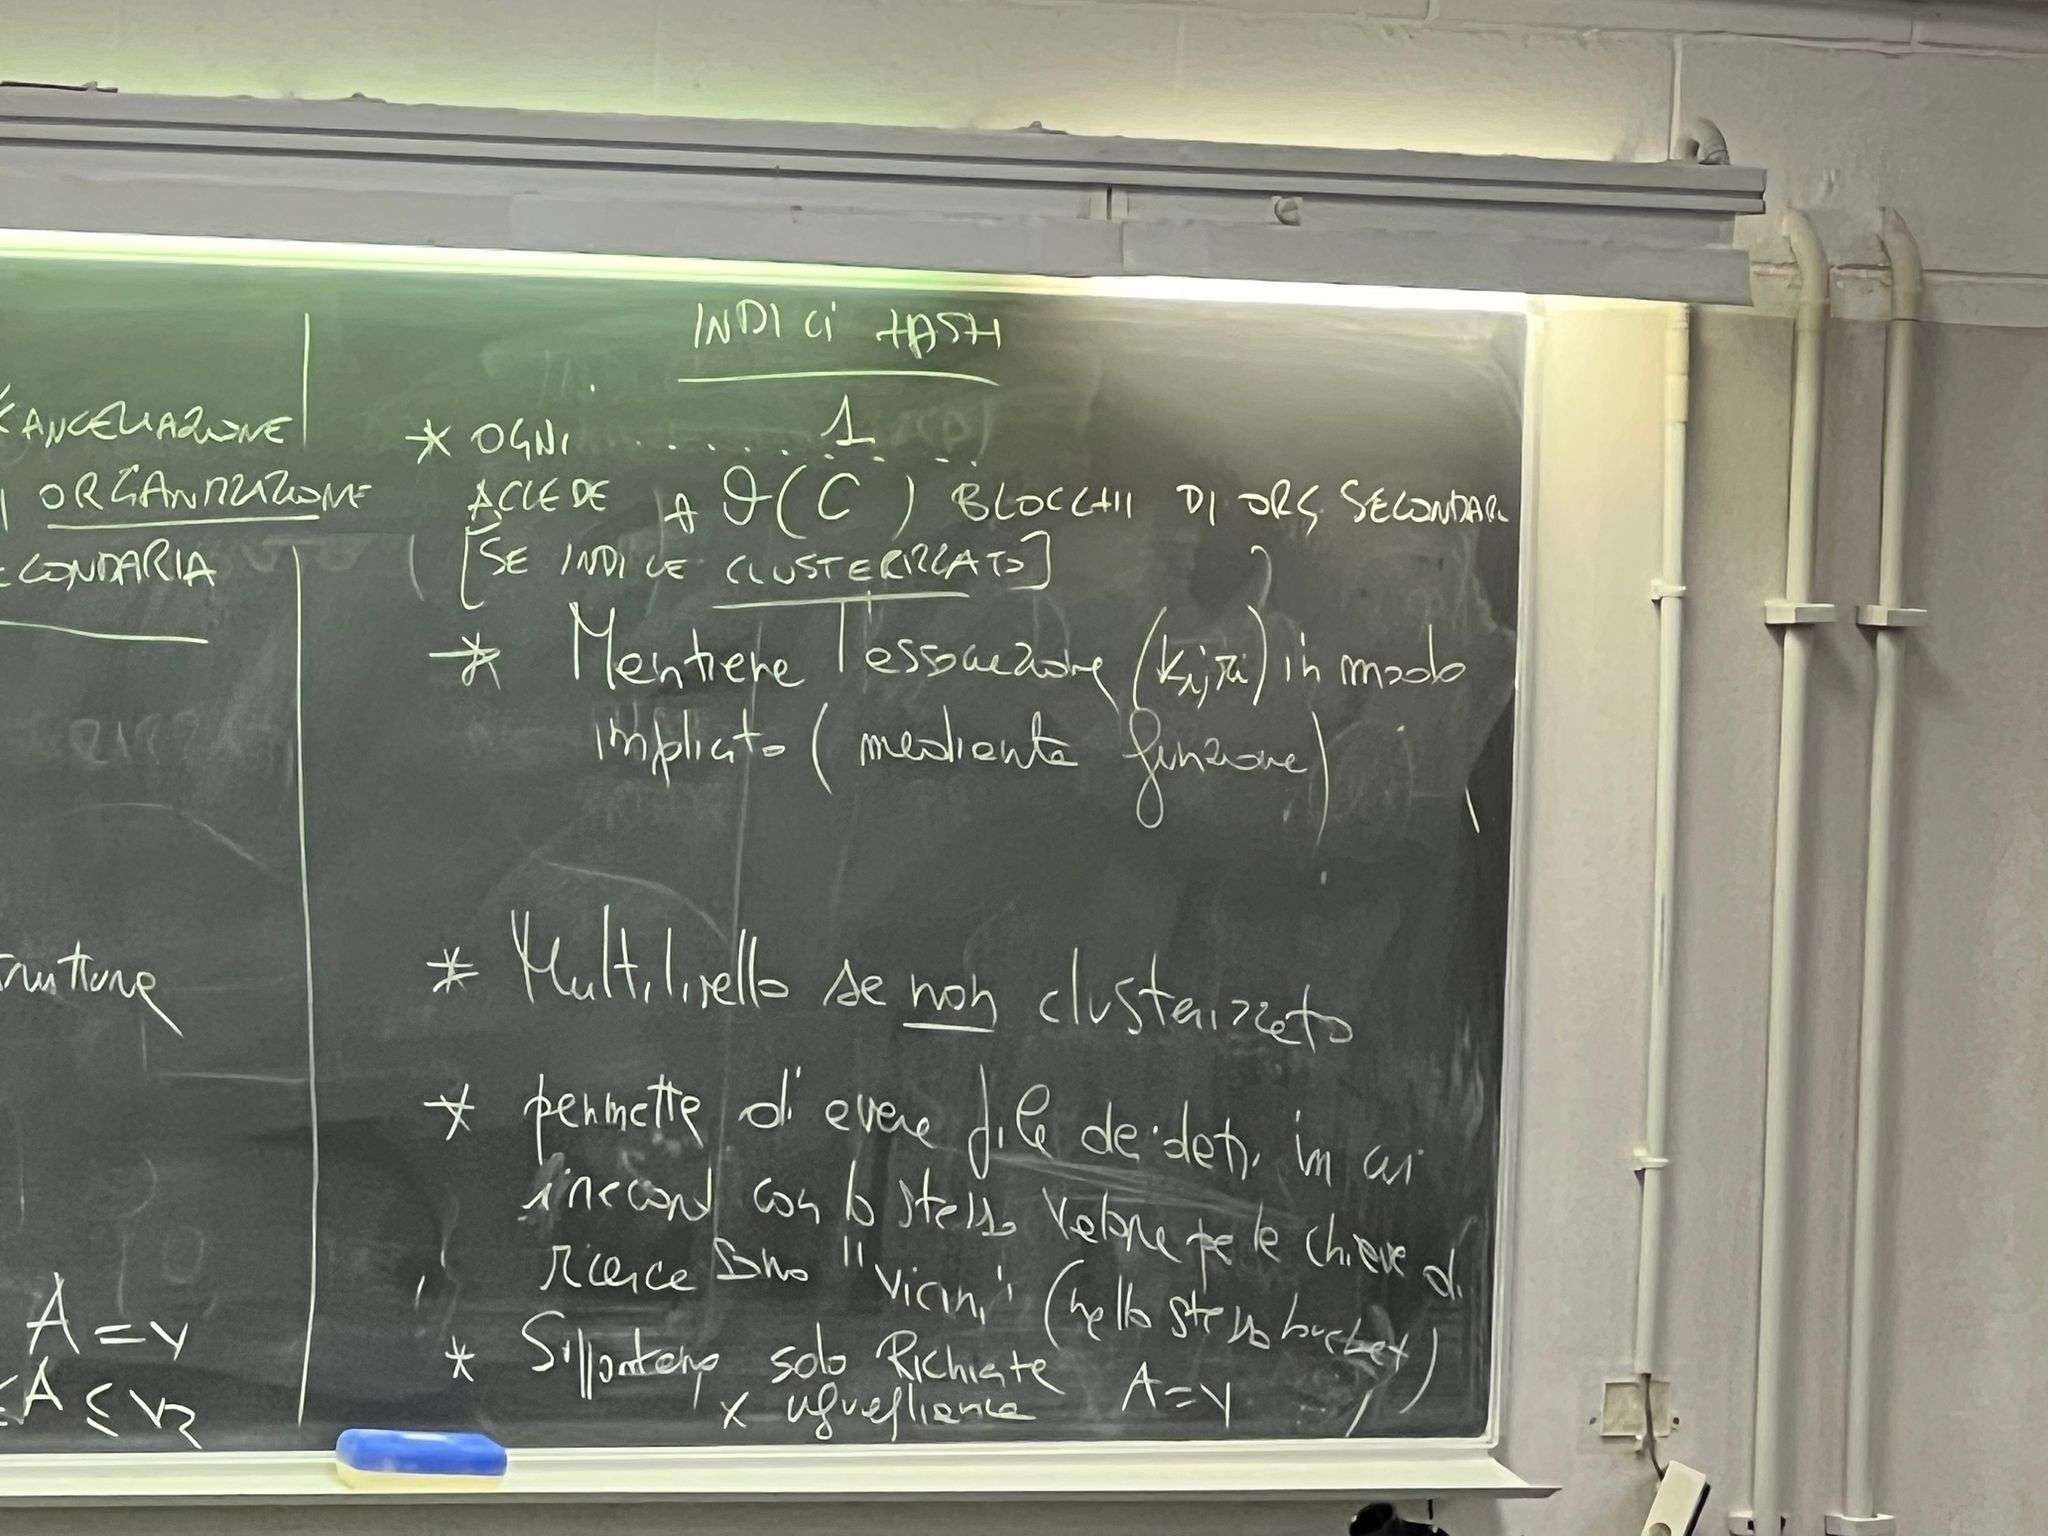 INDICI HASH
CANCELLAZIONE
ORGANIZZAZIONE
SECONDARIA
* OGNI . . . . . . 1 . . .
ACCEDE A ϑ(C) BLOCCHI DI ORG SECONDARI
[SE INDICE CLUSTERIZZATO]
* Mantiene l'associazione (ki, ri) in modo
implicito (mediante funzione)
* Multilivello se non clusterizzato
* permette di avere file dei dati in cui
i record con lo stesso valore per la chiave di
ricerca sono "vicini" (nello stesso bucket)
* Supportano solo Richieste A=v
x uguaglianza
A = v
≤ A ≤ v2